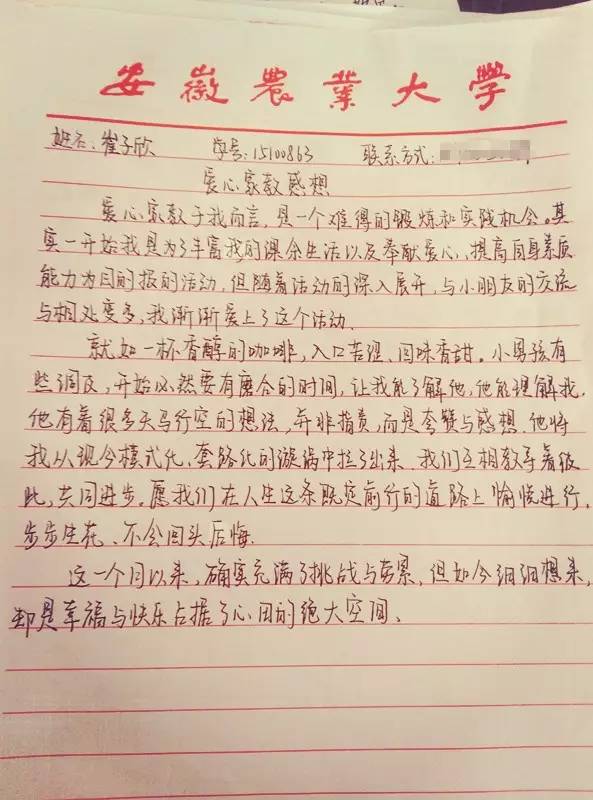 安徽農業大學
姓名:崔子欣 学号:15100863 联系方式:
爱心家教感想
爱心家教于我而言,是一个难得的锻炼和实践机会。其
实一开始我是为了丰富我的课余生活以及奉献爱心、提高自身素质
能力为目的报的活动,但随着活动的深入展开,与小朋友的交流
与相处变多,我渐渐爱上了这个活动.
就如一杯香醇的咖啡,入口苦涩、回味香甜。小男孩有
些调皮,开始必然要有磨合的时间,让我能了解他,他能理解我.
他有着很多天马行空的想法,并非指责,而是夸赞与感想.他将
我从现今模式化、套路化的漩涡中拉了出来.我们互相教导着彼
此,共同进步。愿我们在人生这条既定前行的道路上愉悦进行,
步步生花、不会回头后悔.
这一个月以来,确实充满了挑战与劳累,但如今细细想来,
却是幸福与快乐占据了心田的绝大空间、